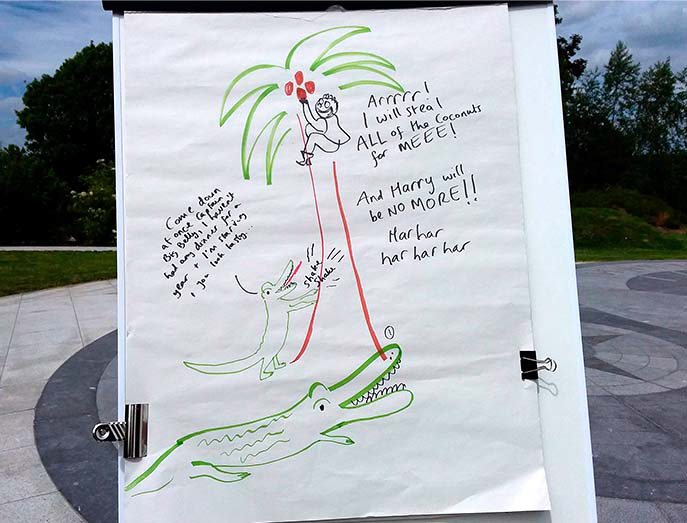 Arrrrr!
I will steal
ALL of the coconuts
for MEEE!
And Harry will
be NO MORE!!
Har har
har har har
Come down
at once Captain
Big Belly. I haven't
had any dinner for a
year & I'm starving
& you look tasty...
shake
shake
①